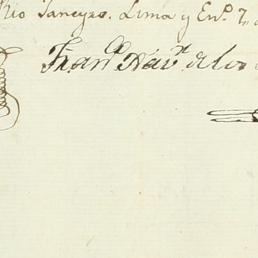 Rio Janeyro. Lima y En.º 7,,
Fran.co Nav.º de los